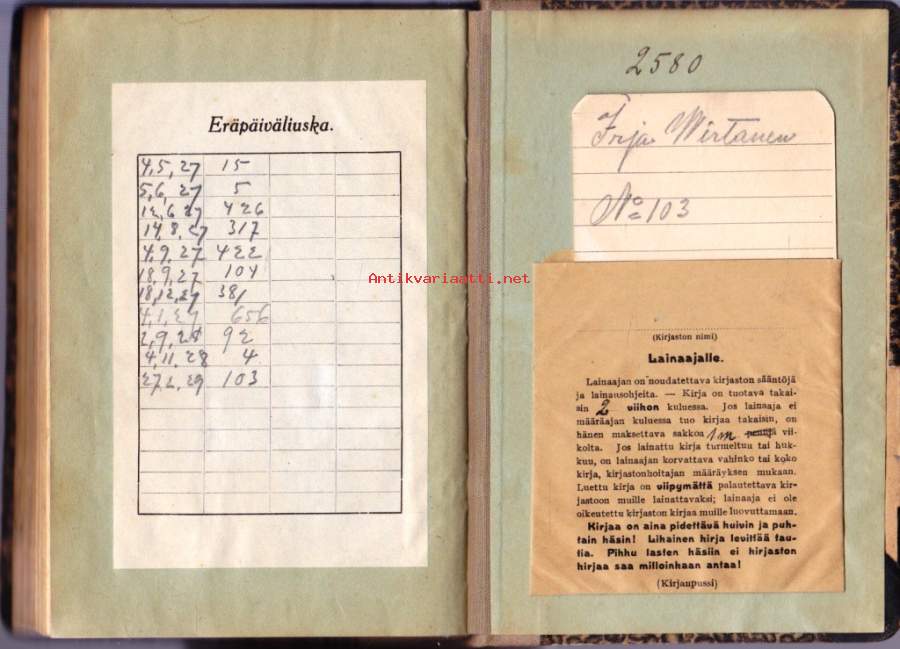 Eräpäiväliuska.
4,5,27 15
5,6,27 5
12,6,27 426
14,8,27 317
4,9,27 422
18,9,27 104
18,12,27 381
4,1,29 656
2,9,28 92
4,11,28 4
27,2,29 103
2580
Irja Wirtanen
No 103
Antikvariaatti.net
(Kirjaston nimi)
Lainaajalle.
Lainaajan on noudatettava kirjaston sääntöjä
ja lainausohjeita. — Kirja on tuotava takai-
sin 2 viikon kuluessa. Jos lainaaja ei
määräajan kuluessa tuo kirjaa takaisin, on
hänen maksettava sakkoa 1 m penniä vii-
kolta. Jos lainattu kirja turmeltuu tai huk-
kuu, on lainaajan korvattava vahinko tai koko
kirja, kirjastonhoitajan määräyksen mukaan.
Luettu kirja on viipymättä palautettava kir-
jastoon muille lainattavaksi; lainaaja ei ole
oikeutettu kirjaston kirjaa muille luovuttamaan.
Kirjaa on aina pidettävä kuivin ja puh-
tain käsin! Likainen kirja levittää tau-
tia. Pikku lasten käsiin ei kirjaston
kirjaa saa milloinkaan antaa!
(Kirjanpussi)